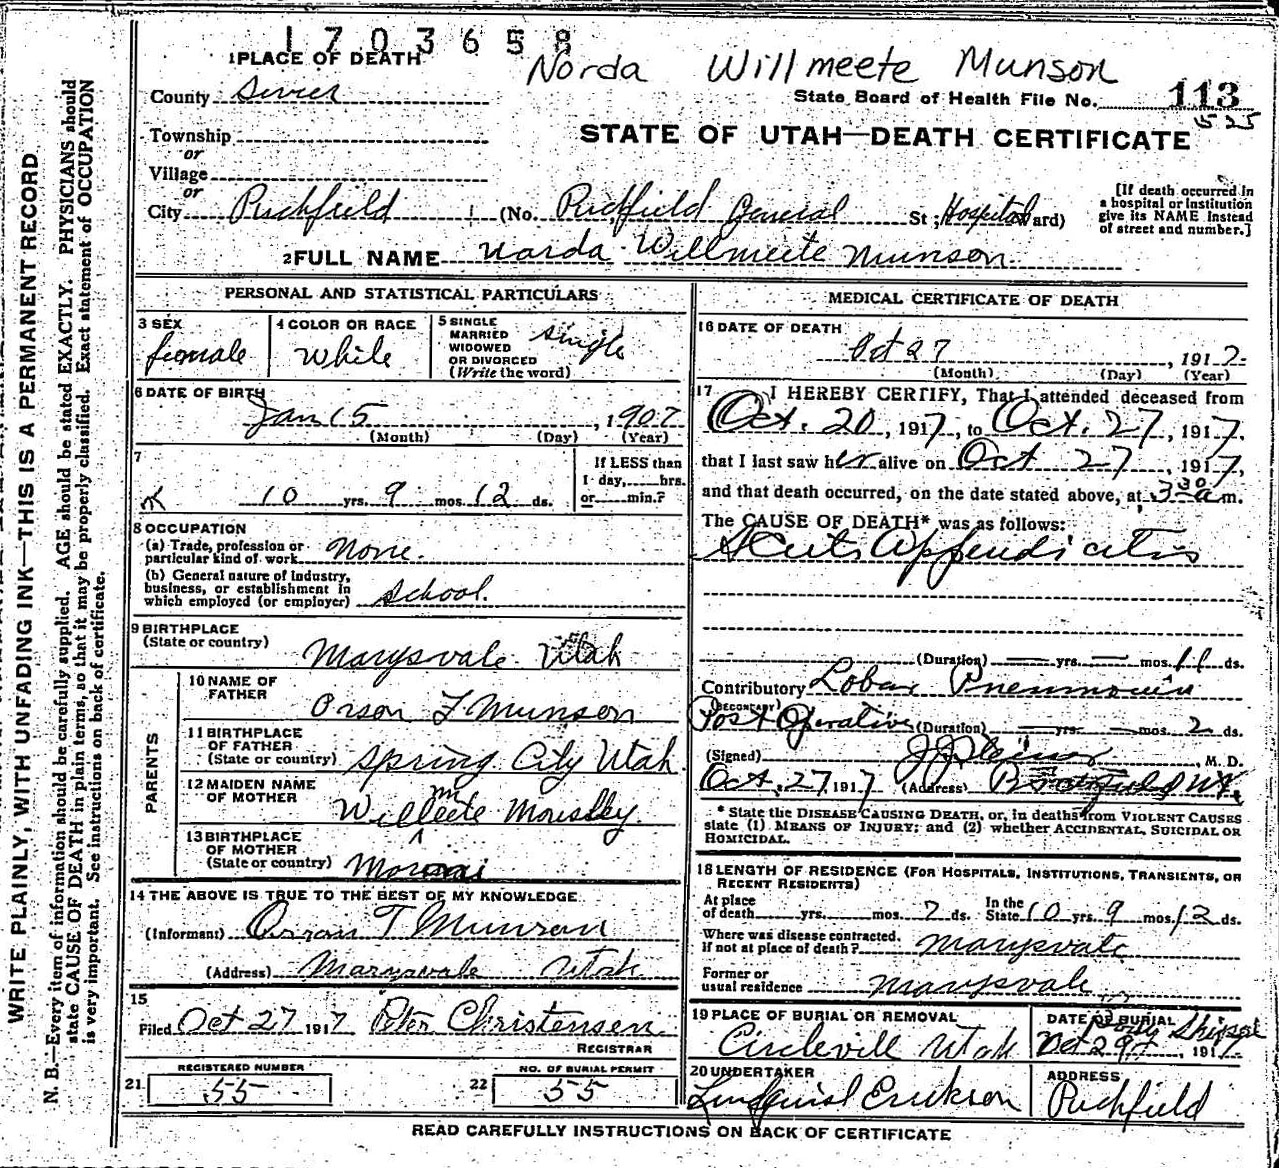 1703658
Norda Willmeete Munson
1 PLACE OF DEATH
County Sevier
State Board of Health File No. 113
5 25
Township
STATE OF UTAH—DEATH CERTIFICATE
or
Village
or
City Richfield (No. Richfield General St ; Hospital Ward)
[If death occurred in
a hospital or institution
give its NAME instead
of street and number.]
2 FULL NAME Narda Willmeete Munson
PERSONAL AND STATISTICAL PARTICULARS
3 SEX
female
4 COLOR OR RACE
White
5 SINGLE
MARRIED
WIDOWED
OR DIVORCED
(Write the word)
single
6 DATE OF BIRTH
Jan 15, 1907
(Month) (Day) (Year)
7
10 yrs. 9 mos. 12 ds.
If LESS than
1 day, hrs.
or min.?
8 OCCUPATION
(a) Trade, profession or
particular kind of work None.
(b) General nature of industry,
business, or establishment in
which employed (or employer) School.
9 BIRTHPLACE
(State or country)
Marysvale Utah
PARENTS
10 NAME OF
FATHER
Orson T Munson
11 BIRTHPLACE
OF FATHER
(State or country) Spring City Utah.
12 MAIDEN NAME
OF MOTHER
Willmeete Mousley
13 BIRTHPLACE
OF MOTHER
(State or country) Moroni
14 THE ABOVE IS TRUE TO THE BEST OF MY KNOWLEDGE
(Informant) Orson T Munson
(Address) Marysvale Utah
15
Filed Oct 27 1917 Peter Christensen
REGISTRAR
REGISTERED NUMBER
21 55
NO. OF BURIAL PERMIT
22 55
MEDICAL CERTIFICATE OF DEATH
16 DATE OF DEATH
Oct 27, 1917
(Month) (Day) (Year)
17 I HEREBY CERTIFY, That I attended deceased from
Oct. 20, 1917, to Oct. 27, 1917.
that I last saw her alive on Oct 27, 1917,
and that death occurred, on the date stated above, at 3 30 a m.
The CAUSE OF DEATH* was as follows:
Acute Appendicitis
(Duration) — yrs. — mos. 11 ds.
Contributory Lobar Pneumonia
(SECONDARY)
Post Operative (Duration) — yrs. — mos. 2 ds.
(Signed) M. D.
Oct. 27, 1917 (Address) Richfield Ut.
* State the DISEASE CAUSING DEATH, or, in deaths from VIOLENT CAUSES
state (1) MEANS OF INJURY; and (2) whether ACCIDENTAL, SUICIDAL OR
HOMICIDAL.
18 LENGTH OF RESIDENCE (FOR HOSPITALS, INSTITUTIONS, TRANSIENTS, OR
RECENT RESIDENTS)
At place
of death yrs. mos. 7 ds.
In the
State 10 yrs. 9 mos. 12 ds.
Where was disease contracted,
if not at place of death? Marysvale
Former or
usual residence Marysvale
19 PLACE OF BURIAL OR REMOVAL
Circlevill Utah
DATE OF BURIAL
Body Shipped
Oct 29, 1917
20 UNDERTAKER
Lundquist Erickson
ADDRESS
Richfield
READ CAREFULLY INSTRUCTIONS ON BACK OF CERTIFICATE
WRITE PLAINLY, WITH UNFADING INK—THIS IS A PERMANENT RECORD
N. B.—Every item of information should be carefully supplied. AGE should be stated EXACTLY. PHYSICIANS should
state CAUSE OF DEATH in plain terms, so that it may be properly classified. Exact statement of OCCUPATION
is very important. See instructions on back of certificate.